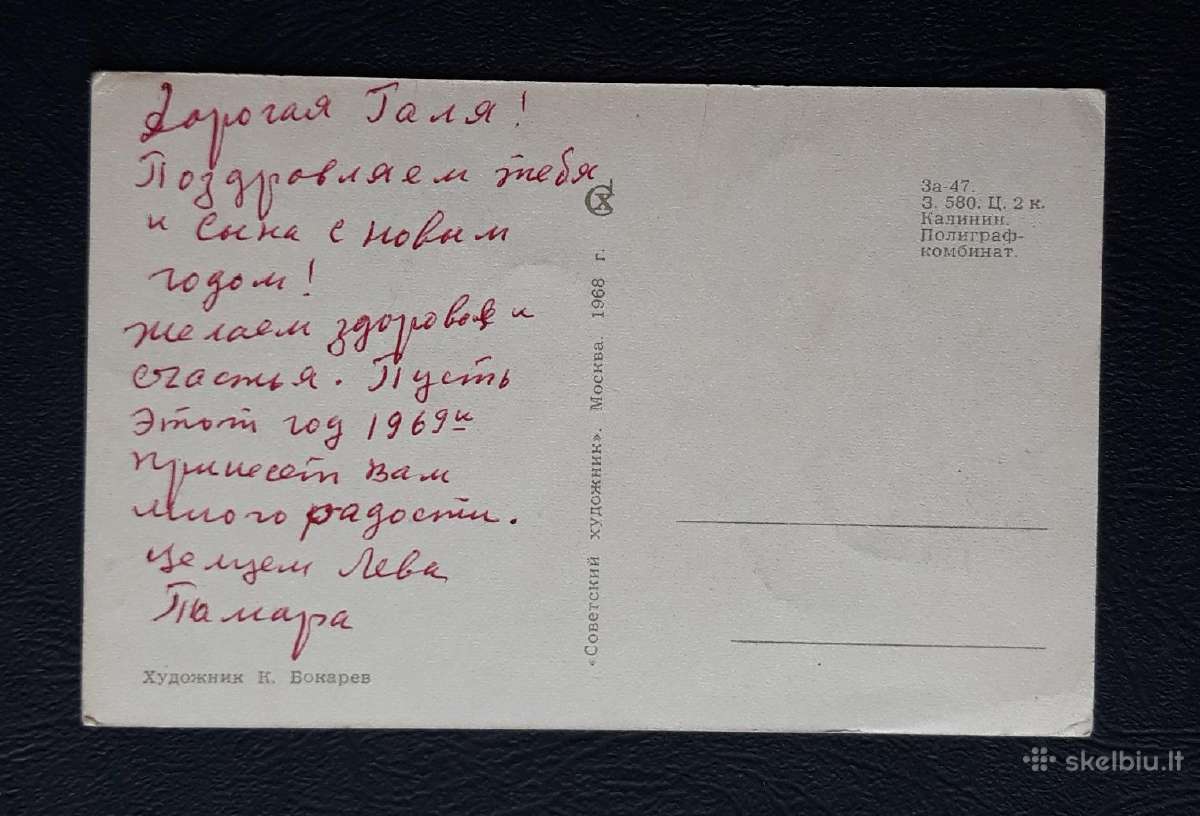 Дорогая Галя!
Поздравляем тебя
и Сына с новым
годом!
Желаем здоровья и
счастья. Пусть
Этот год 1969й
принесёт вам
много радости.
Целуем Лева
Тамара
Художник К. Бокарев
«Советский художник». Москва. 1968 г.
СХ
За-47.
З. 580. Ц. 2 к.
Калинин.
Полиграф-
комбинат.
skelbiu.lt